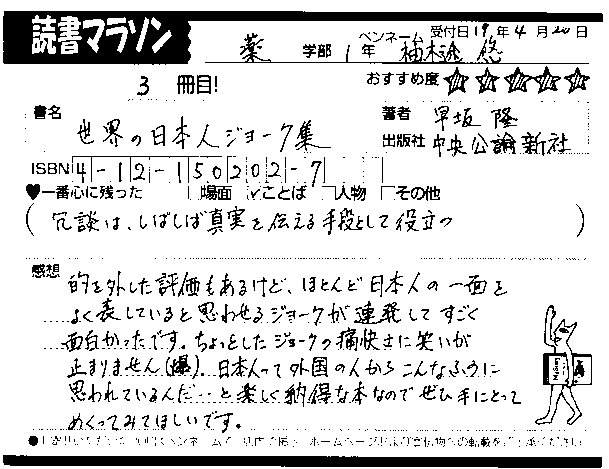 読書マラソン
受付日 19年 4月 20日
ペンネーム
薬 学部 1年 柚木 悠
3 冊目!
おすすめ度 ☆☆☆☆☆
書名 世界の日本人ジョーク集
著者 早坂 隆
出版社 中央公論新社
ISBN 4-12-150202-7
♥一番心に残った □場面 ☑ことば □人物 □その他
( 冗談は、しばしば真実を伝える手段として役立つ )
感想
的を外した評価もあるけど、ほとんど日本人の一面を
よく表していると思わせるジョークが連発してすごく
面白かったです。ちょっとしたジョークの痛快さに笑いが
止まりません(爆)。日本人って外国の人からこんなふうに
思われているんだ…と楽しく納得な本なのでぜひ手にとって
めくってみてほしいです。